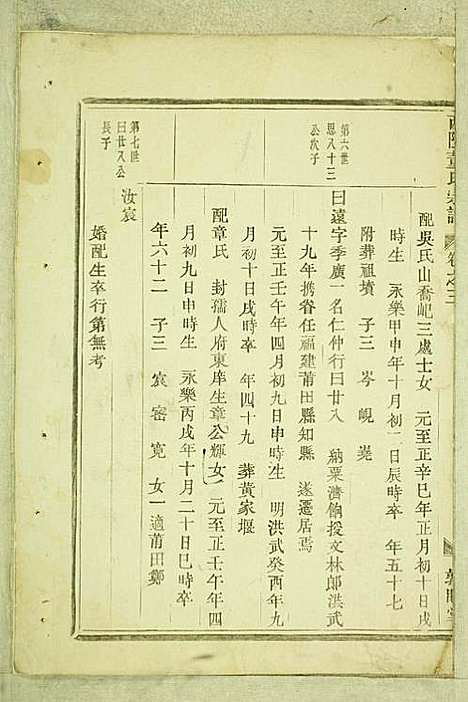 卷之三
配吳氏山喬屺三處士女 元至正辛巳年正月初十日戌
時生 永樂甲申年十月初二日辰時卒 年五十七
附葬祖墳 子三 岑峴堯
第六世
思八十三
公次子
曰遠字季廣一名仁仲行曰廿八 納粟濟餉授文林郎洪武
十九年携眷任福建莆田縣知縣 遂遷居焉
元至正壬午年四月初九日申時生 明洪武癸酉年九
月初十日戌時卒 年四十九 葬黃家堰
配章氏 封孺人府東庠生章公輝女 元至正壬午年四
月初九日申時生 永樂丙戌年十月二十日巳時卒
年六十二 子三 宸密寬 女一適莆田鄭
第七世
曰廿八公
長子
汝宸
婚配生卒行第無考